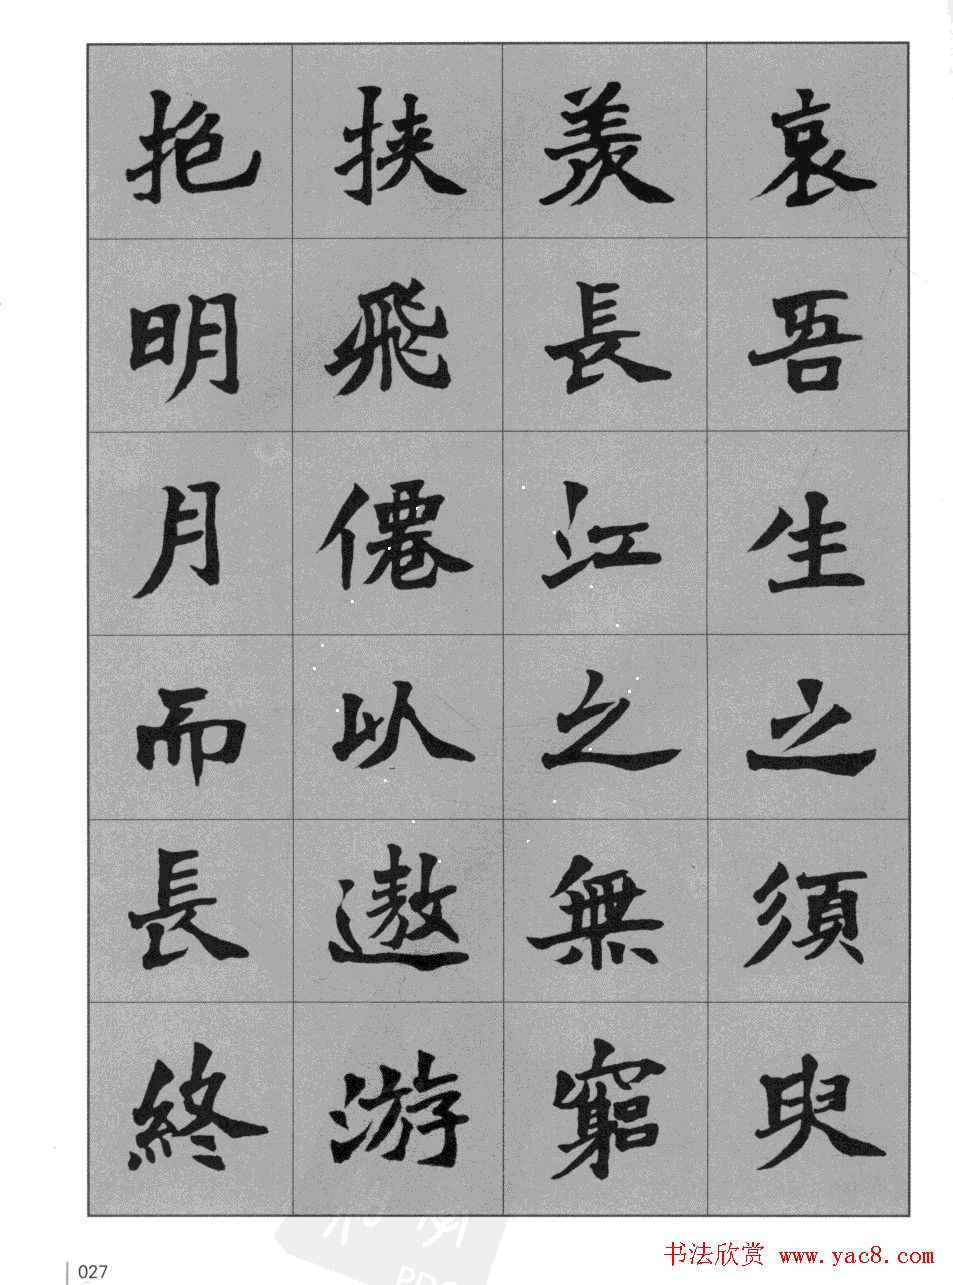 哀吾生之須臾
羨長江之無窮
挟飛僊以遨游
抱明月而長終
027
书法欣赏 www.yac8.com